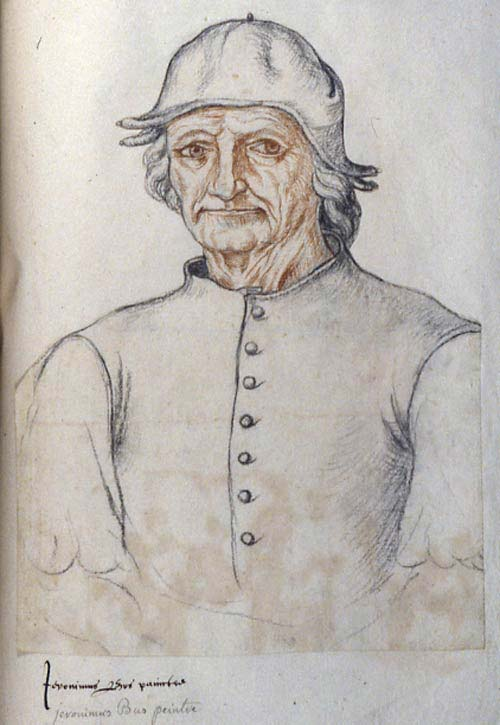 Jeronimus Bos painctre
jeronimus Bus peintre